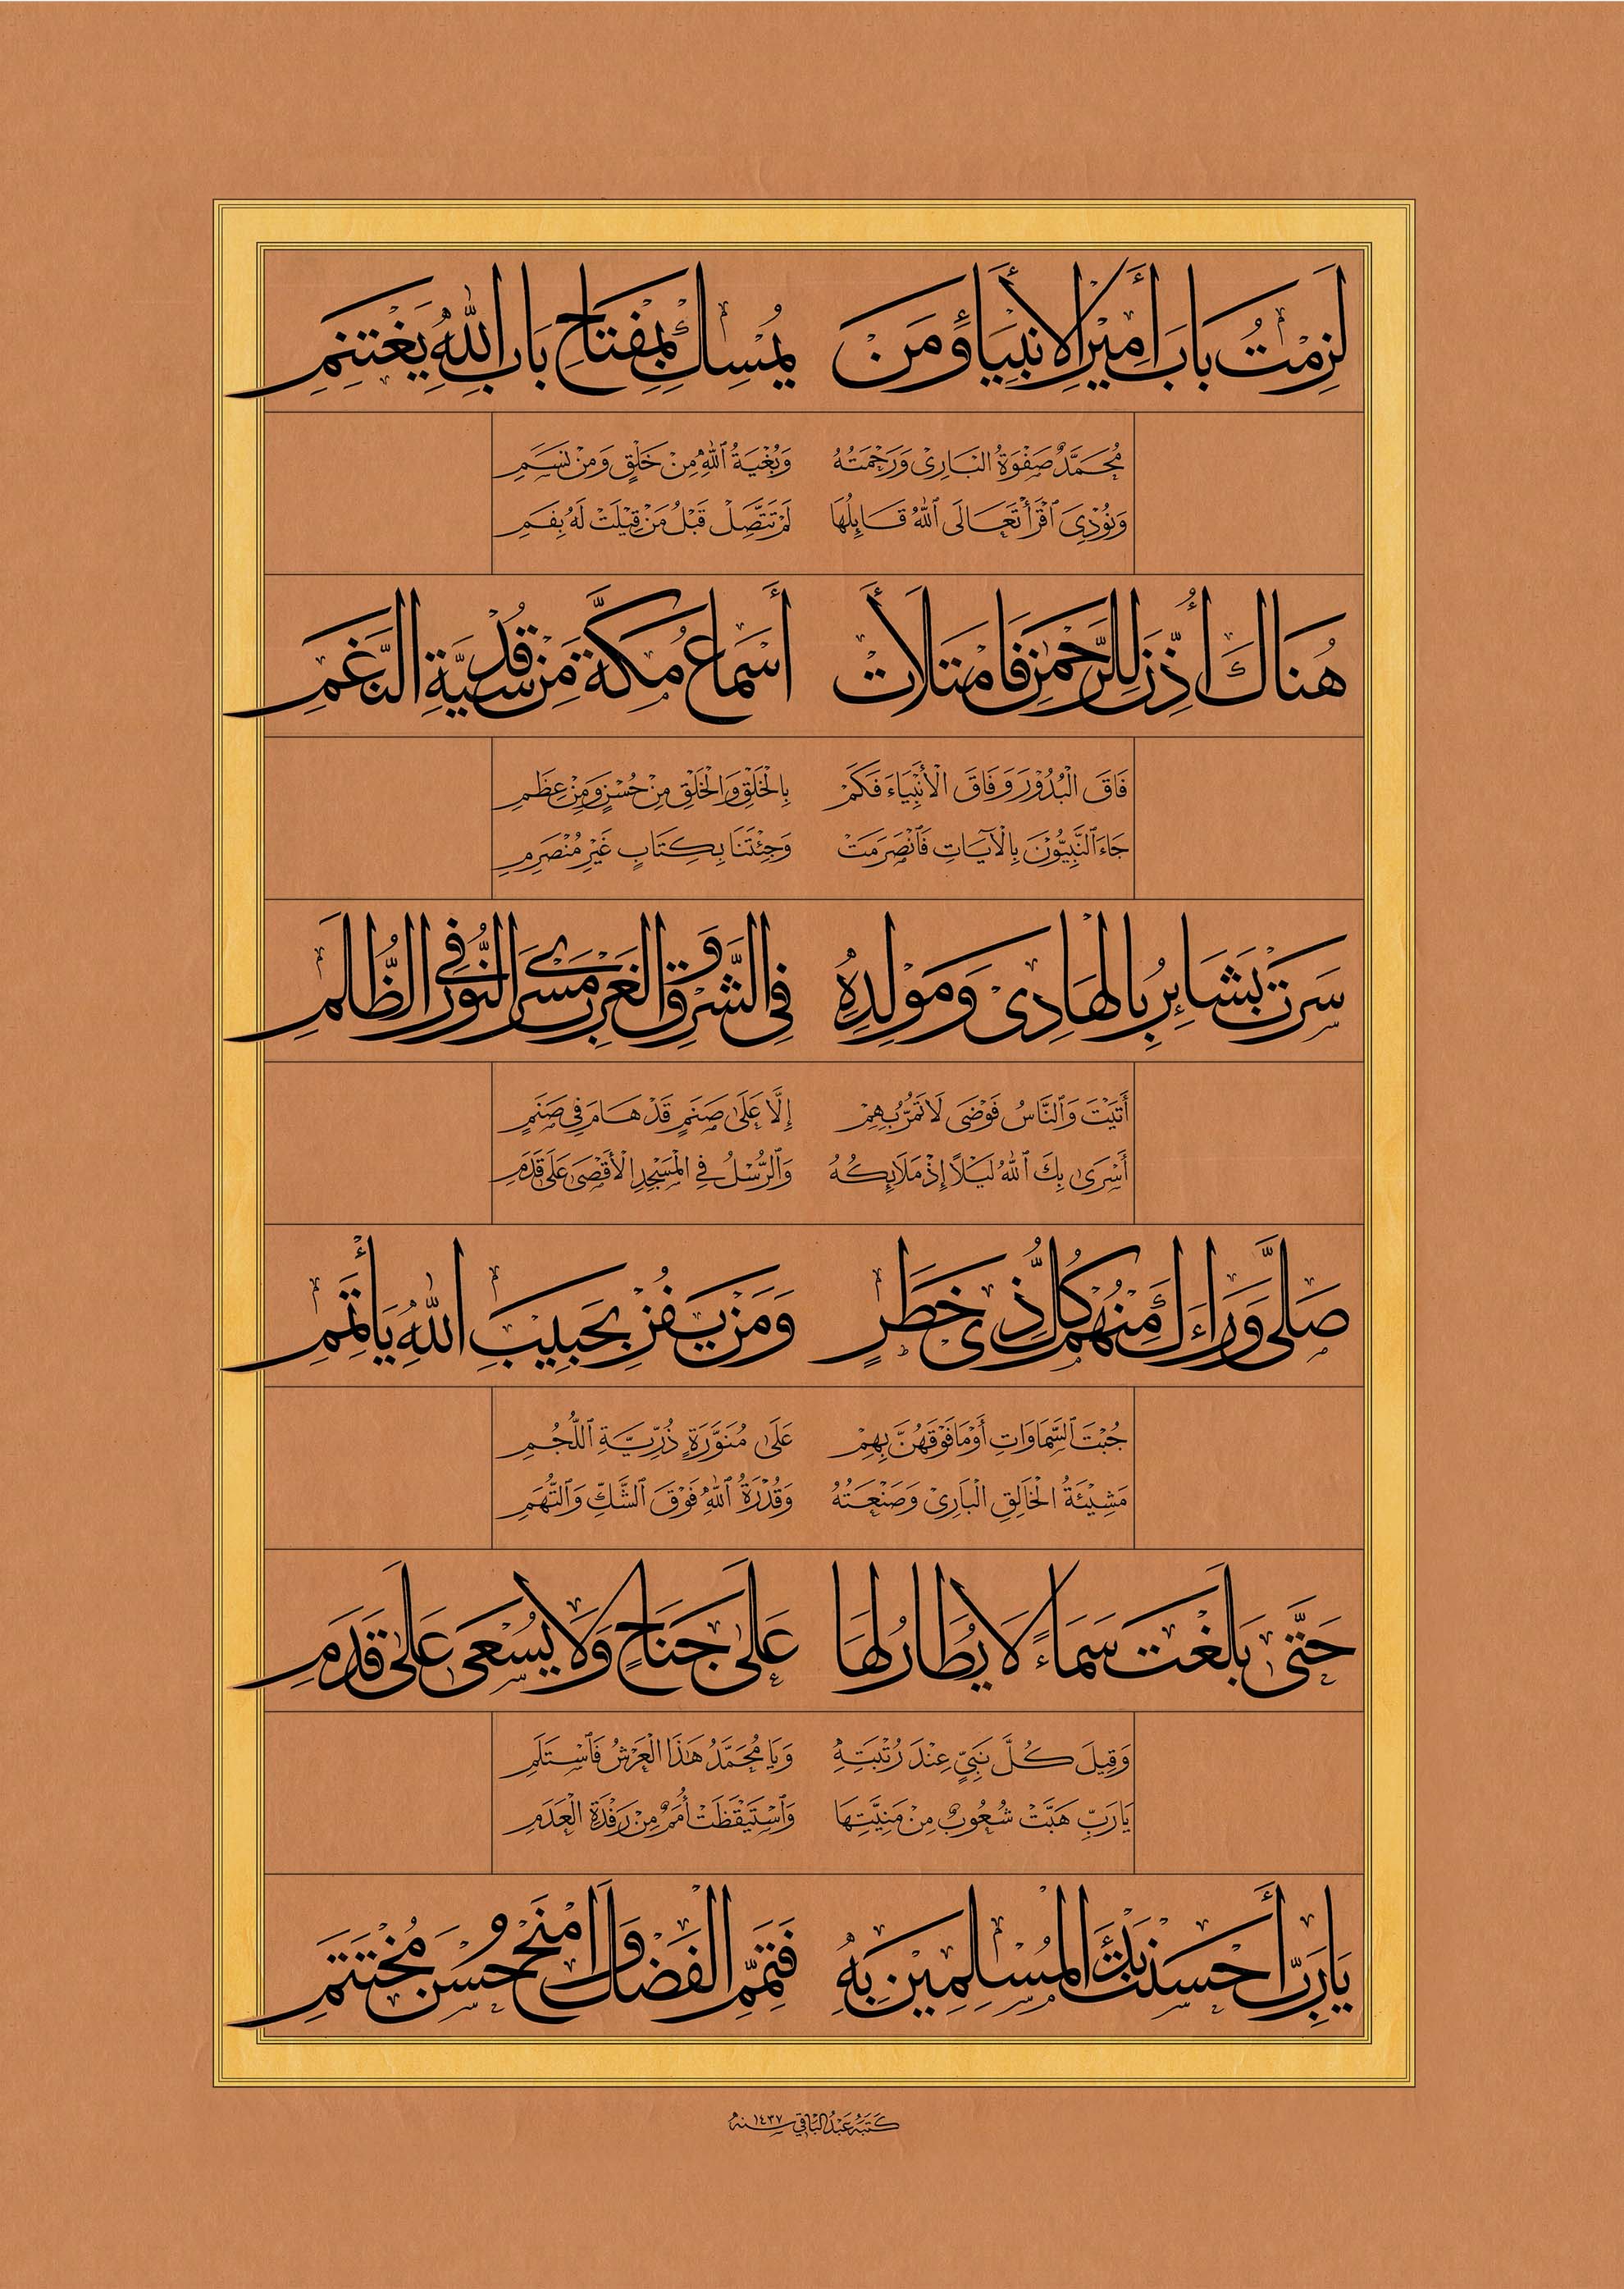 لَزِمْتُ بَابَ أَمِيْرِ الأَنْبِيَاءِ وَمَنْ يُمْسِكْ بِمِفْتَاحِ بَابِ اللهِ يَغْتَنِمِ
مُحَمَّدٌ صَفْوَةُ البَارِىْ وَرَحْمَتُهُ وَبُغْيَةُ ٱللهِ مِنْ خَلْقٍ وَمِنْ نَسَمِ
وَنُوْدِىَ ٱقْرَأْ تَعَالَى ٱللهُ قَائِلُهَا لَمْ تَتَّصِلْ قَبْلُ مَنْ قِيْلَتْ لَهُ بِفَمِ
هُنَاكَ أُذِّنَ لِلرَّحْمٰنِ فَامْتَلَأَتْ أَسْمَاعُ مَكَّةَ مِنْ قُدْسِيَّةِ النَّغَمِ
فَاقَ الْبُدُوْرَ وَفَاقَ الْأَنْبِيَاءَ فَكَمْ بِالْخَلْقِ وَالْخُلْقِ مِنْ حُسْنٍ وَمِنْ عِظَمِ
جَاءَ ٱلنَّبِيُّوْنَ بِالْآيَاتِ فَٱنْصَرَمَتْ وَجِئْتَنَا بِكِتَابٍ غَيْرِ مُنْصَرِمِ
سَرَتْ بَشَائِرُ بِالهَادِىْ وَمَوْلِدِهِ فِي الشَّرْقِ وَالغَرْبِ مَسْرَى النُّوْرِ فِي الظُّلَمِ
أَتَيْتَ وَٱلنَّاسُ فَوْضَى لَا تَمُرُّ بِهِمْ إِلَّا عَلَى صَنَمٍ قَدْ هَامَ فِي صَنَمِ
أَسْرَى بِكَ ٱللهُ لَيْلًا إِذْ مَلَائِكُهُ وَٱلرُّسْلُ فِي الْمَسْجِدِ الْأَقْصَى عَلَى قَدَمِ
صَلَّى وَرَاءَكَ مِنْهُمْ كُلُّ ذِىْ خَطَرٍ وَمَنْ يَفُزْ بِحَبِيْبِ اللهِ يَأْتَمِمِ
جُبْتَ ٱلسَّمَاوَاتِ أَوْ مَا فَوْقَهُنَّ بِهِمْ عَلَى مُنَوَّرَةٍ دُرِّيَّةِ ٱللُّجُمِ
مَشِيْئَةُ الْخَالِقِ الْبَارِىْ وَصَنْعَتُهُ وَقُدْرَةُ ٱللهِ فَوْقَ ٱلشَّكِّ وَٱلتُّهَمِ
حَتَّى بَلَغْتَ سَمَاءً لَا يُطَارُ لَهَا عَلَى جَنَاحٍ وَلَا يُسْعَى عَلَى قَدَمِ
وَقِيلَ كُلُّ نَبِيٍّ عِنْدَ رُتْبَتِهِ وَيَا مُحَمَّدُ هٰذَا الْعَرْشُ فَٱسْتَلِمِ
يَا رَبِّ هَبَّتْ شُعُوبٌ مِنْ مَنِيَّتِهَا وَٱسْتَيْقَظَتْ أُمَمٌ مِنْ رَقْدَةِ الْعَدَمِ
يَا رَبِّ أَحْسَنْتَ بَدْءَ المُسْلِمِيْنَ بِهِ فَتَمِّمِ الْفَضْلَ وَامْنَحْ حُسْنَ مُخْتَتَمِ
كَتَبَهُ عَبْدُ البَاقِي سنه ١٤٣٧